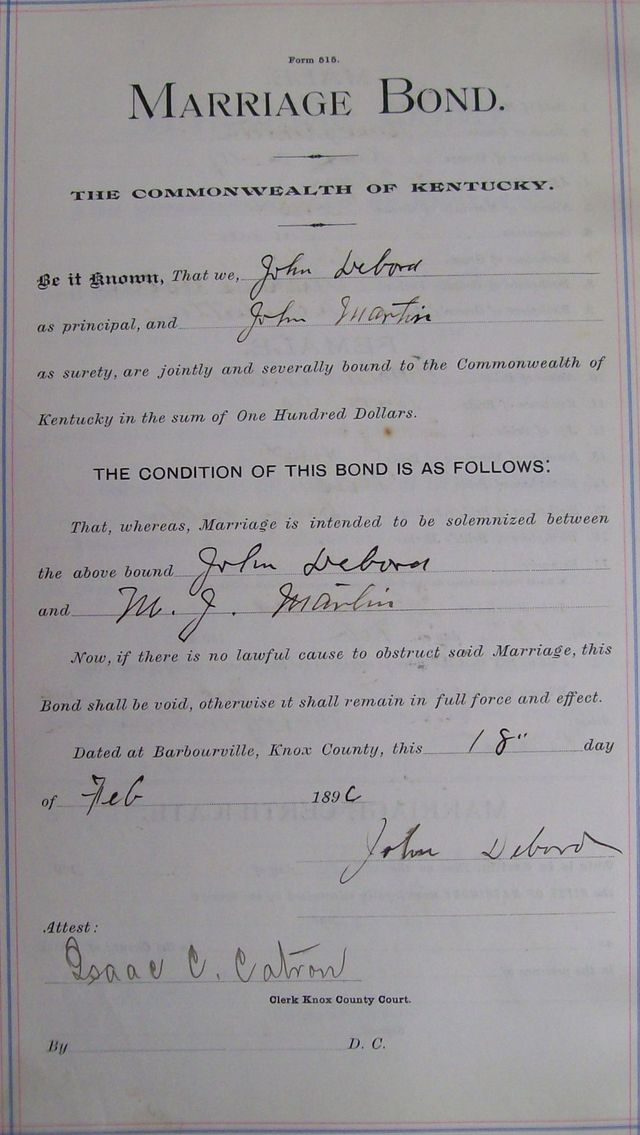 Form 515.
MARRIAGE BOND.
THE COMMONWEALTH OF KENTUCKY.
Be it Known, That we, John Debord
as principal, and John Martin
as surety, are jointly and severally bound to the Commonwealth of
Kentucky in the sum of One Hundred Dollars.
THE CONDITION OF THIS BOND IS AS FOLLOWS:
That, whereas, Marriage is intended to be solemnized between
the above bound John Debord
and M. J. Martin
Now, if there is no lawful cause to obstruct said Marriage, this
Bond shall be void, otherwise it shall remain in full force and effect.
Dated at Barbourville, Knox County, this 18" day
of Feb 1896
John Debord
Attest:
Isaac C. Catron
Clerk Knox County Court.
By D. C.